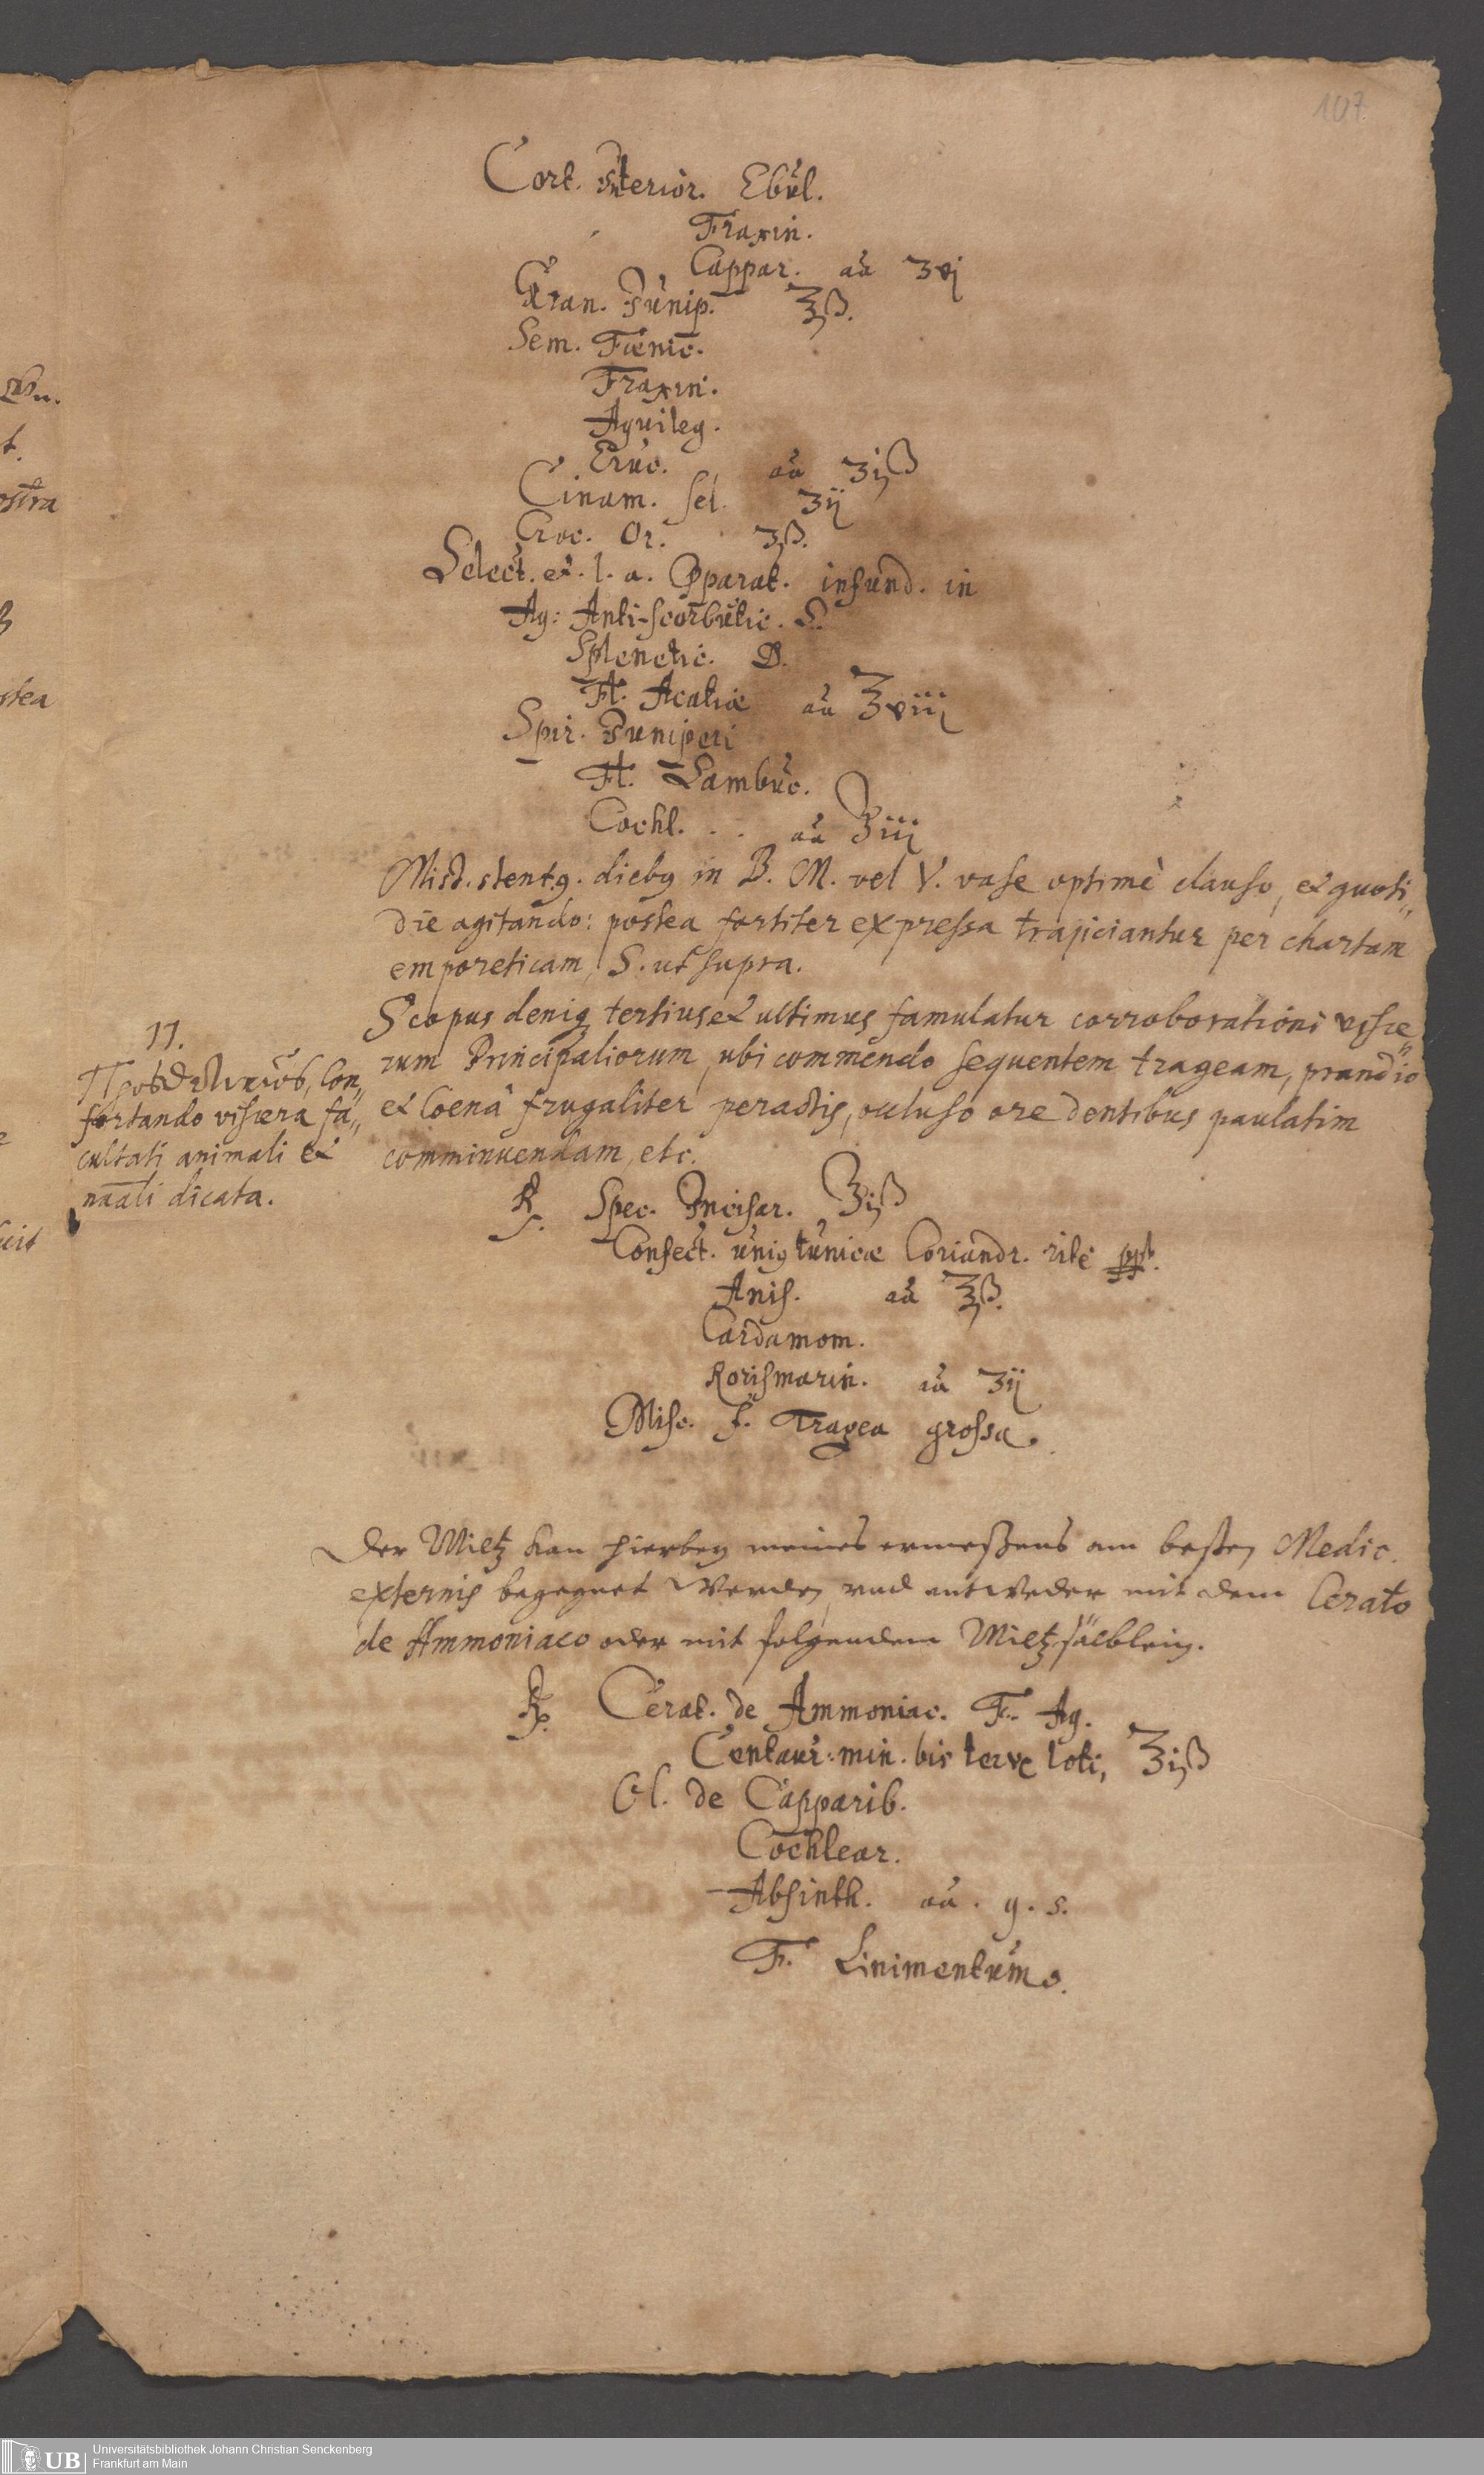 107
Cort. Interior. Ebul.
Fraxin.
Cappar. aa ʒvj
Gran. Junip. ℥ß.
Sem. Fœnic.
Fraxin.
Aquileg.
Eruc. aa ʒjß
Cinam. sel. ʒij
Croc. Or. ʒß.
Select. et. l. a. pparat. infund. in
Aq: Anti-scorbutic. S.
Splenetic. D.
Fl. Acatiæ aa ℥viij
Spir. Juniperi
Fl. Sambuc.
Cochl. . . aa ℥iij
Mist. stent 9. dieb9 in B. M. vel V. vase optimè clauso, et quoti„
die agitando: postea fortiter expressa trajiciantur per chartam
emporeticam, S. ut supra.
Scopus deniq tertius et ultimus famulatur corroborationi visce„
rum Principaliorum, ubi commendo sequentem trageam, prandio
et Coenâ frugaliter peractis, occluso ore dentibus paulatim
comminuendam, etc.
11.
Con„
fortando viscera fa„
cultati animali et
nãali dicata.
℞. Spec. Incisar. ℥jß
Confect. uniq tunicæ Coriandr. ritè ppt.
Anis. aa ℥ß.
Cardamom.
Rorismarin. aa ʒij
Misc. f. Tragea grossa.
Der Miltz kan hierbey meines ermeßens am besten Medic.
externis begegnet werden, und entweder mit dem Cerato
de Ammoniaco oder mit folgendem Miltzsälblein.
℞. Cerat. de Ammoniac. F. Aq.
Centaur: min. bis terve loti, ℥jß
Ol. de Capparib.
Cochlear.
Absinth. aa. q. s.
F. Linimentum.
UB
Universitätsbibliothek Johann Christian Senckenberg
Frankfurt am Main